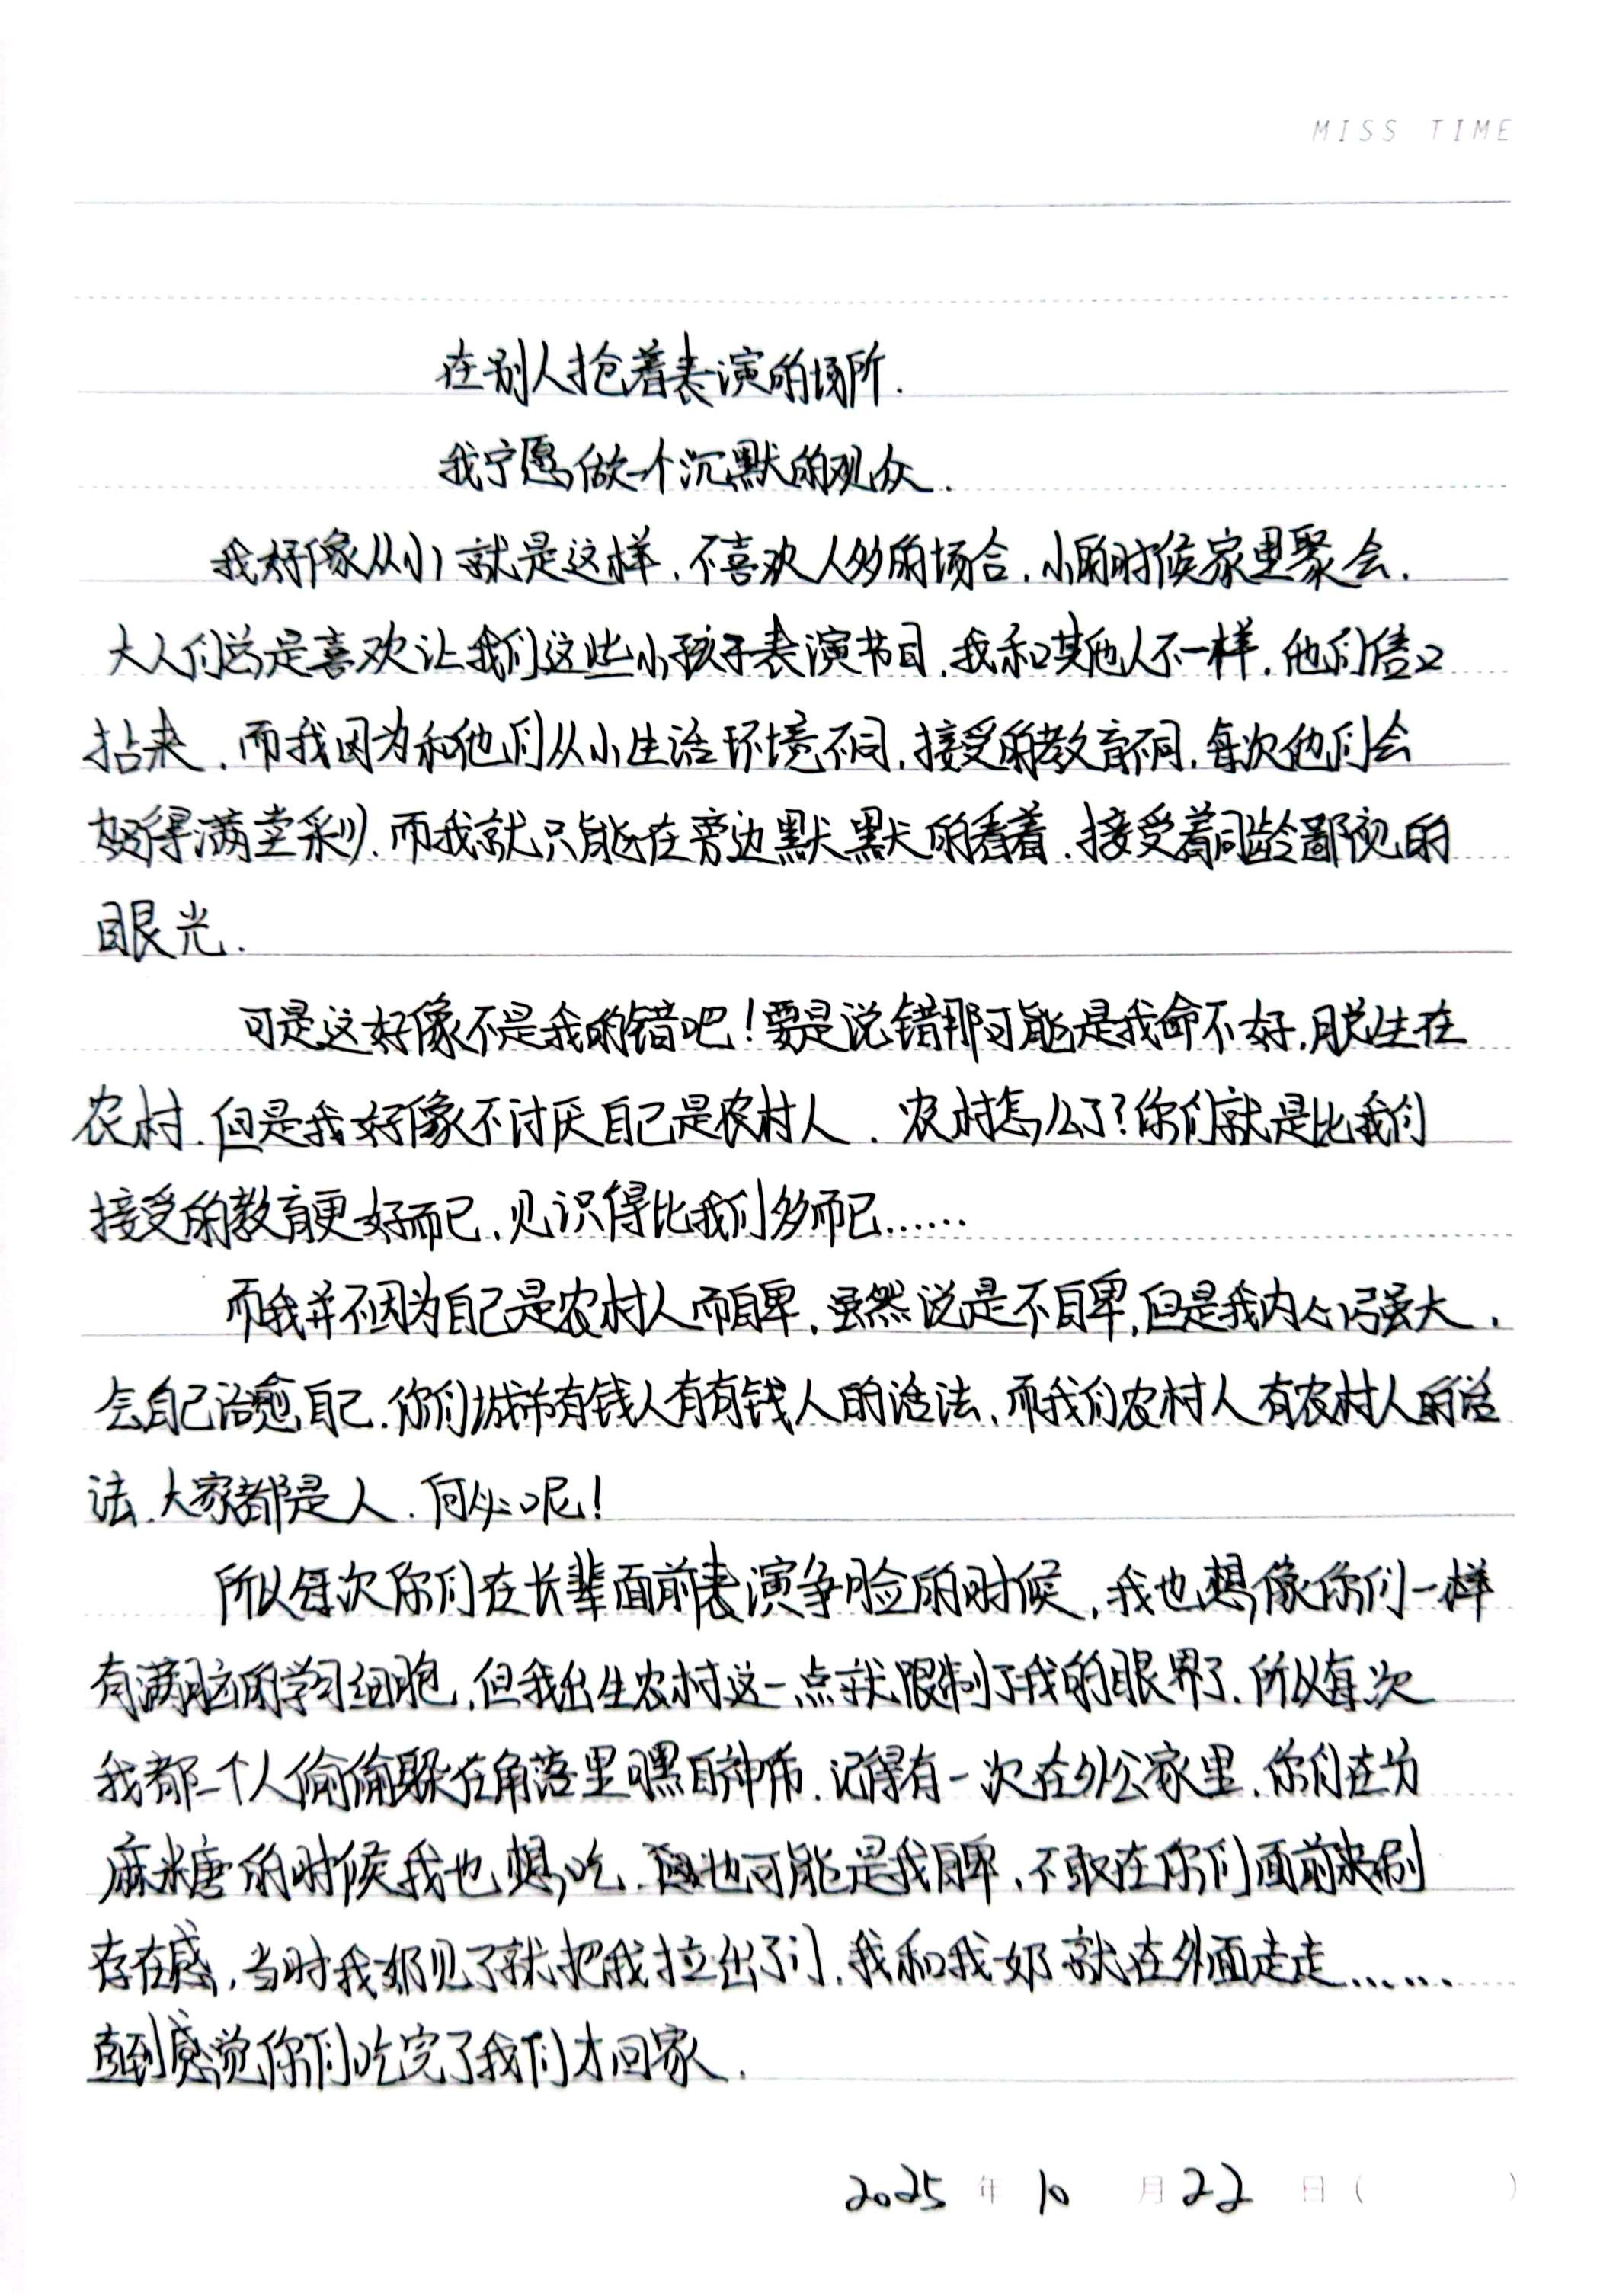 MISS TIME
在别人抢着表演的场所.
我宁愿做一个沉默的观众.
我好像从小就是这样,不喜欢人多的场合,小的时候家里聚会.
大人们总是喜欢让我们这些小孩子表演节目,我和其他人不一样.他们信又
拈来.而我因为和他们从小生活环境不同,接受的教育不同,每次他们会
博得满堂彩.而我就只能在旁边默默的看着.接受着同龄鄙视的
眼光.
可是这好像不是我的错吧!要是说错那可能是我命不好,脱生在
农村.但是我好像不讨厌自己是农村人.农村怎么了?你们就是比我们
接受的教育更好而已,见识得比我们多而已......
而我并不因为自己是农村人而自卑,虽然说是不自卑,但是我内心强大.
会自己治愈自己.你们城市有钱人有有钱人的活法,而我们农村人有农村人的活
法.大家都是人.何必呢!
所以每次你们在长辈面前表演争脸的时候,我也想像你们一样
有满脑的学习细胞,但我出生农村这一点就限制了我的眼界了.所以每次
我都一个人偷偷躲在角落里暗自神伤.记得有一次在外公家里.你们在分
麻糖的时候我也想吃.但也可能是我自卑,不敢在你们面前来刷
存在感,当时我奶见了就把我拉出了门.我和我奶就在外面走走......
直到感觉你们吃完了我们才回家.
2025年10月22日( )